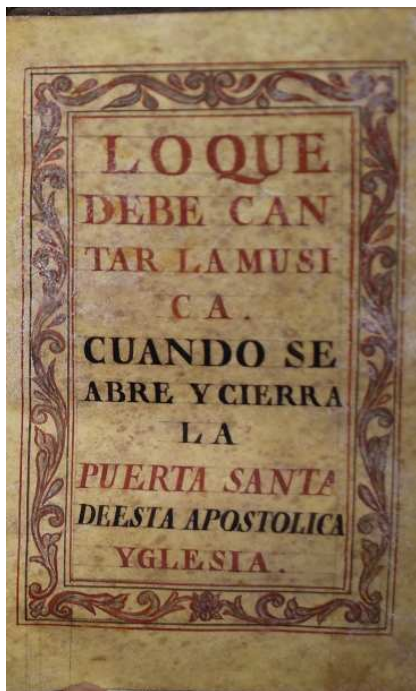 LO QUE
DEBE CAN
TAR LA MUSI
CA.
CUANDO SE
ABRE Y CIERRA
LA
PUERTA SANTA
DE ESTA APOSTOLICA
YGLESIA.